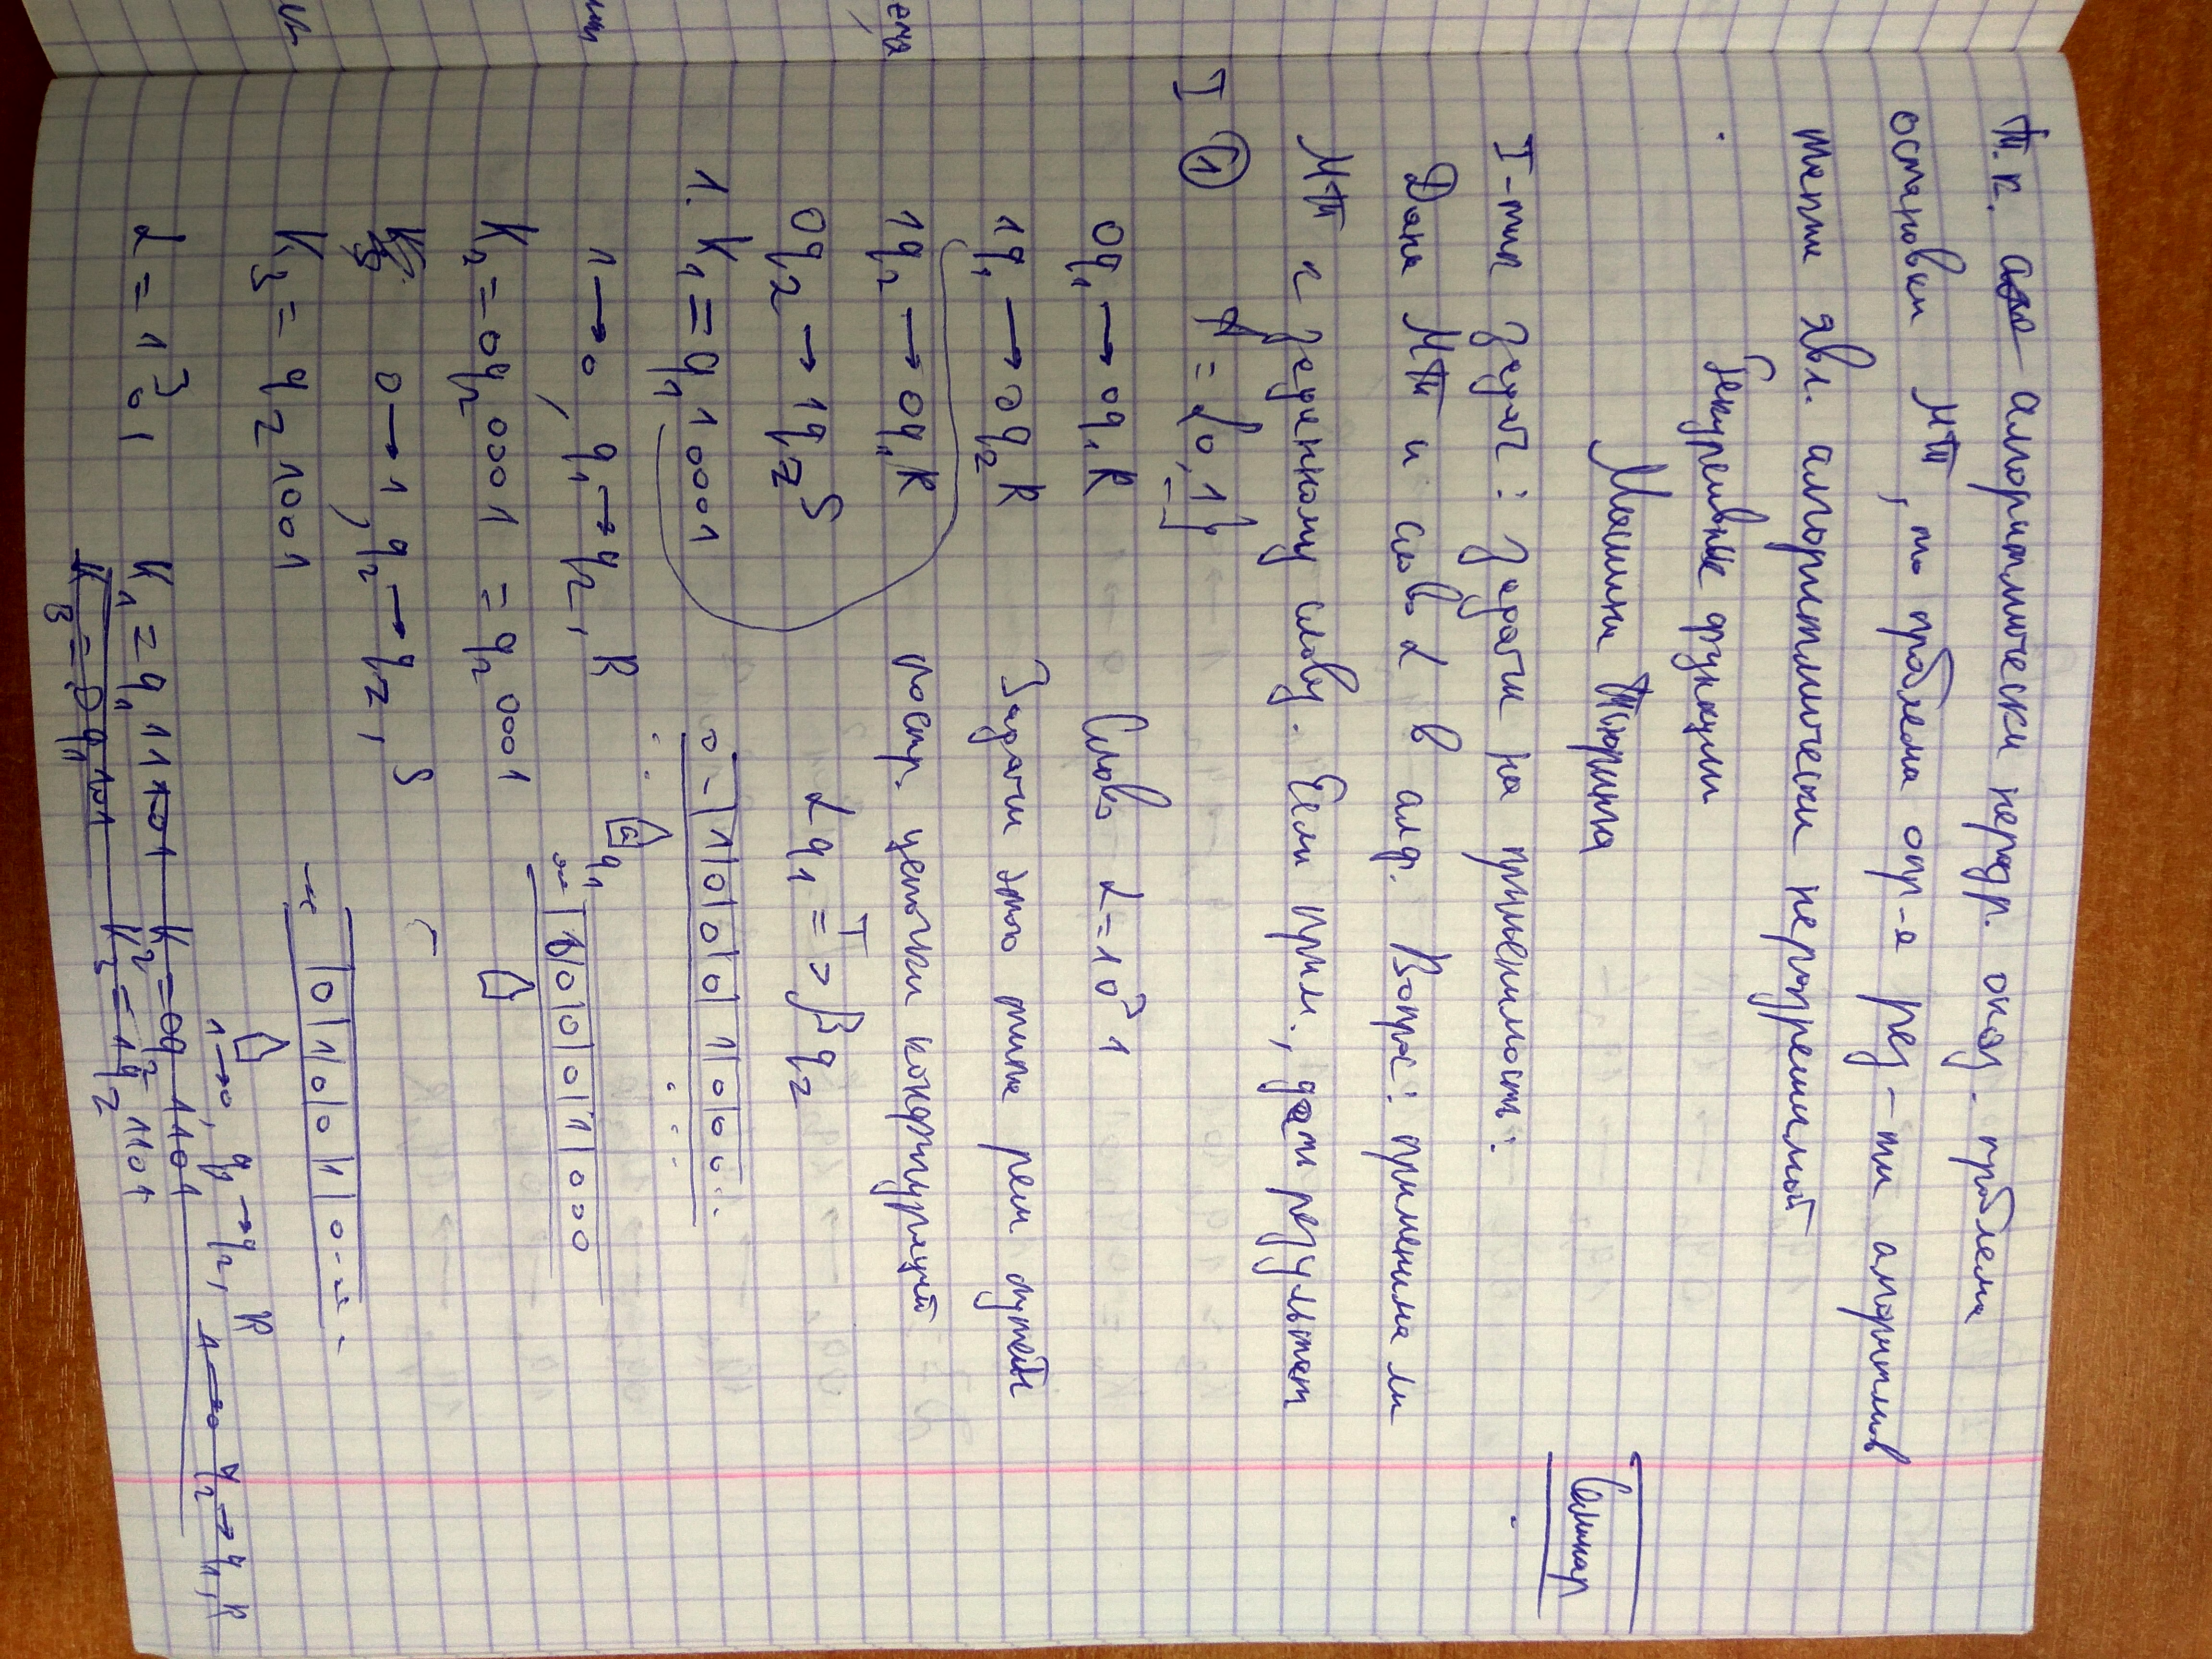 Т.к. алгоритмически неразр. оказ. проблема
остановки МТ, то проблема опр-я рез-ти алгоритмов
также явл. алгоритмически неразрешимой
Рекурсивные функции
Машина Тьюринга
Семинар
I-тип задач: задачи на применимость:
Дана МТ и слово α в алф. Вопрос: применима ли
МТ к заданному слову. Если прим., дать результат
I ① A = {0, 1}
0q₁ → 0q₁R Слово α = 10³1
1q₁ → 0q₂R Задачи этого типа реш. путем
1q₂ → 0q₁R постр. цепочки конфигураций
0q₂ → 1q_z S αq₁ =T=> βq_z
1. K₁ = q₁10001 0 - |1|0|0|0|1|0|0 0 ..
q₁
1 → 0, q₁ → q₂, R |0|0|0|0|1|000
K₂ = 0q₂0001 = q₂0001
0 → 1, q₂ → q_z, S
|0|1|0|0|1|0
K₃ = q_z1001
1 → 0, q₁ → q₂, R 1 → 0 q₂ → q₁, R
α = 1³01 K₁ = q₁11101 K₂ = 0q₂1101
K₃ = 0q₁101 K₃ = 1q_z1101